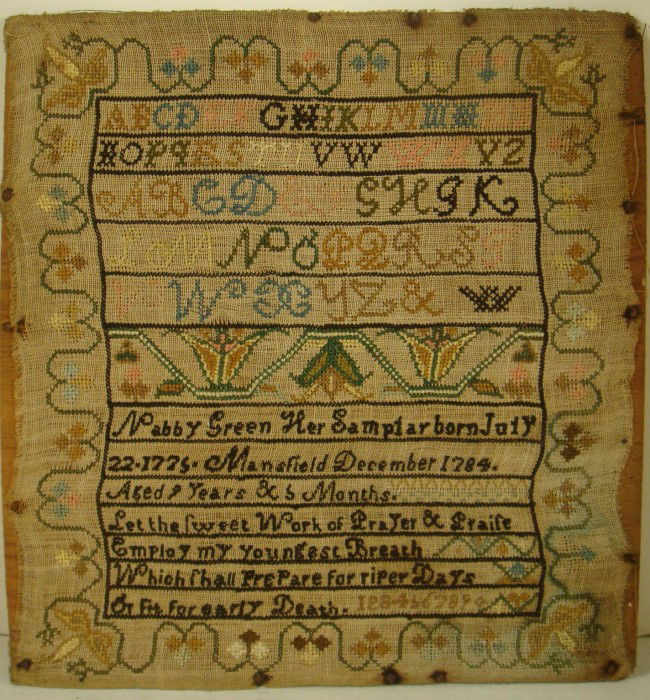 ABCD GHIKLM
OPqRS VW YZ
AB CD GHIK
L M N O P Q R S
W X YZ &
Nabby Green Her Samplar born July
22·1775· Mansfield December 1784.
Aged 9 Years & 5 Months.
Let the ſweet Work of Prayer & Praiſe
Employ my youngest Breath
Which ſhall PrePare for riPer Days
Or fit for early Death. 123456789